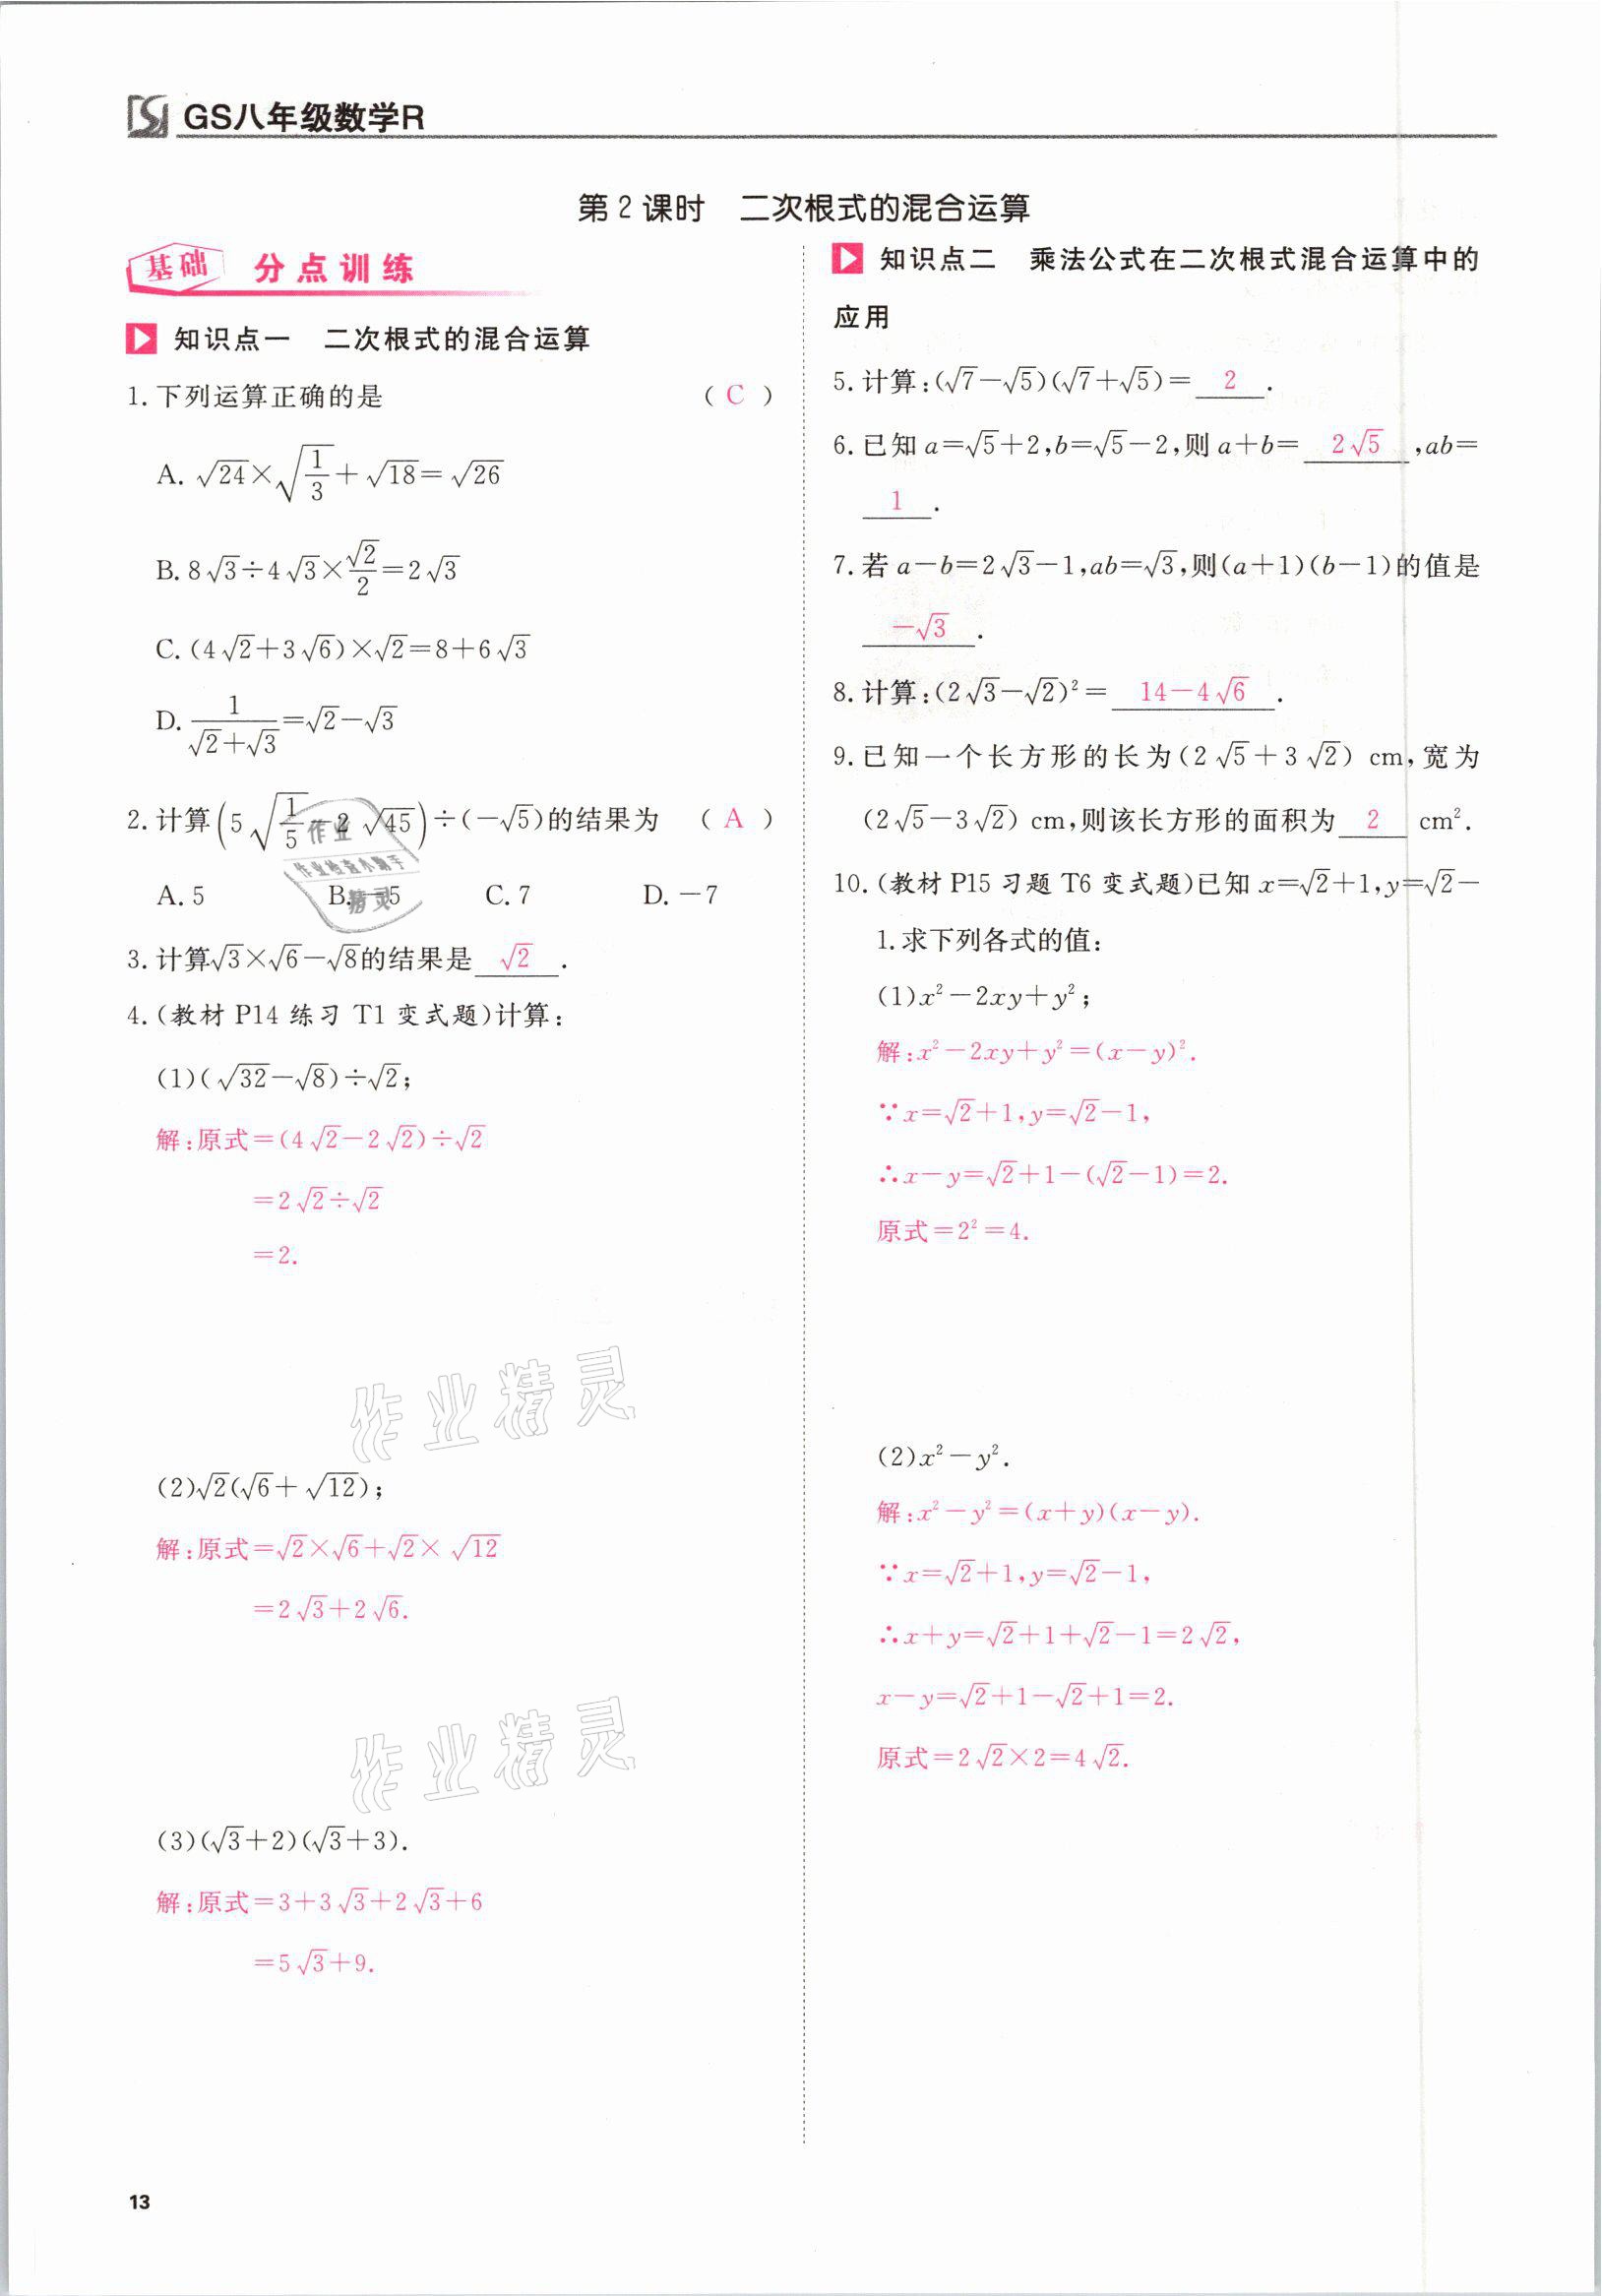 GS八年级数学R
第2课时 二次根式的混合运算
基础 分点训练
知识点一 二次根式的混合运算
1.下列运算正确的是 ( C )
A. √24×√(1/3)+√18=√26
B. 8√3÷4√3×√2/2=2√3
C. (4√2+3√6)×√2=8+6√3
D. 1/(√2+√3)=√2-√3
2.计算(5√(1/5)-2√45)÷(-√5)的结果为 ( A )
A. 5 B. -5 C. 7 D. -7
3.计算√3×√6-√8的结果是 √2 .
4.(教材 P14 练习 T1 变式题)计算:
(1)(√32-√8)÷√2;
解:原式=(4√2-2√2)÷√2
=2√2÷√2
=2.
(2)√2(√6+√12);
解:原式=√2×√6+√2×√12
=2√3+2√6.
(3)(√3+2)(√3+3).
解:原式=3+3√3+2√3+6
=5√3+9.
知识点二 乘法公式在二次根式混合运算中的
应用
5.计算:(√7-√5)(√7+√5)= 2 .
6.已知 a=√5+2,b=√5-2,则 a+b= 2√5 ,ab=
1 .
7.若 a-b=2√3-1,ab=√3,则(a+1)(b-1)的值是
-√3 .
8.计算:(2√3-√2)²= 14-4√6 .
9.已知一个长方形的长为(2√5+3√2) cm,宽为
(2√5-3√2) cm,则该长方形的面积为 2 cm².
10.(教材 P15 习题 T6 变式题)已知 x=√2+1,y=√2-
1.求下列各式的值:
(1)x²-2xy+y²;
解:x²-2xy+y²=(x-y)².
∵x=√2+1,y=√2-1,
∴x-y=√2+1-(√2-1)=2.
原式=2²=4.
(2)x²-y².
解:x²-y²=(x+y)(x-y).
∵x=√2+1,y=√2-1,
∴x+y=√2+1+√2-1=2√2,
x-y=√2+1-√2+1=2.
原式=2√2×2=4√2.
作业
作业检查小助手
精灵
作业精灵
作业精灵
13